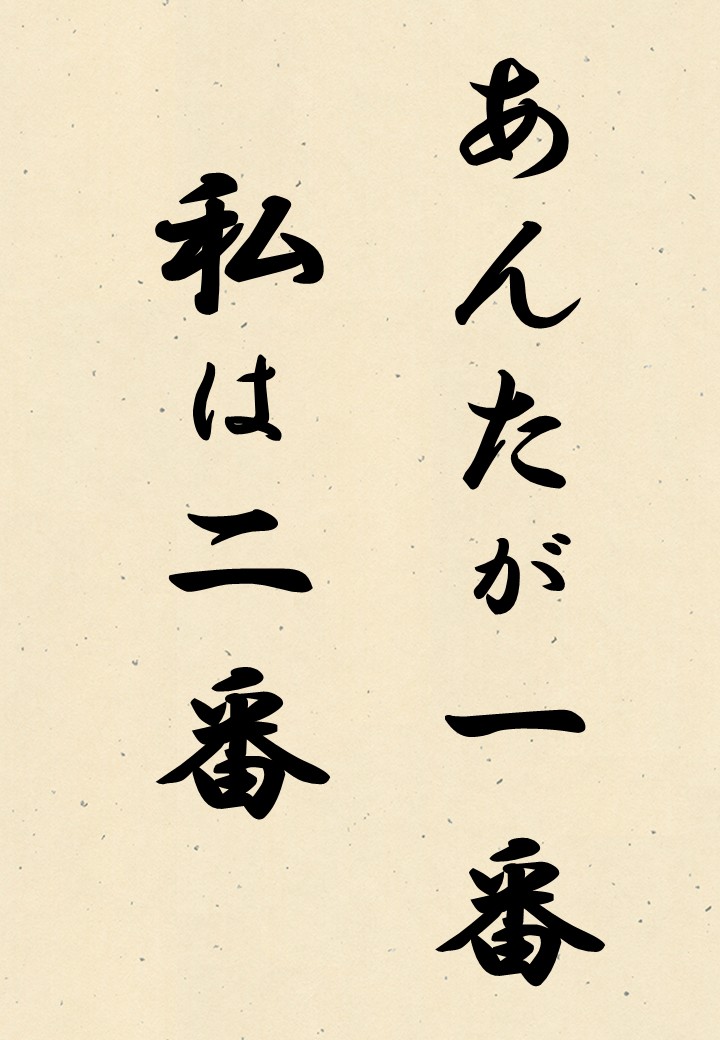 あんたが一番
私は二番